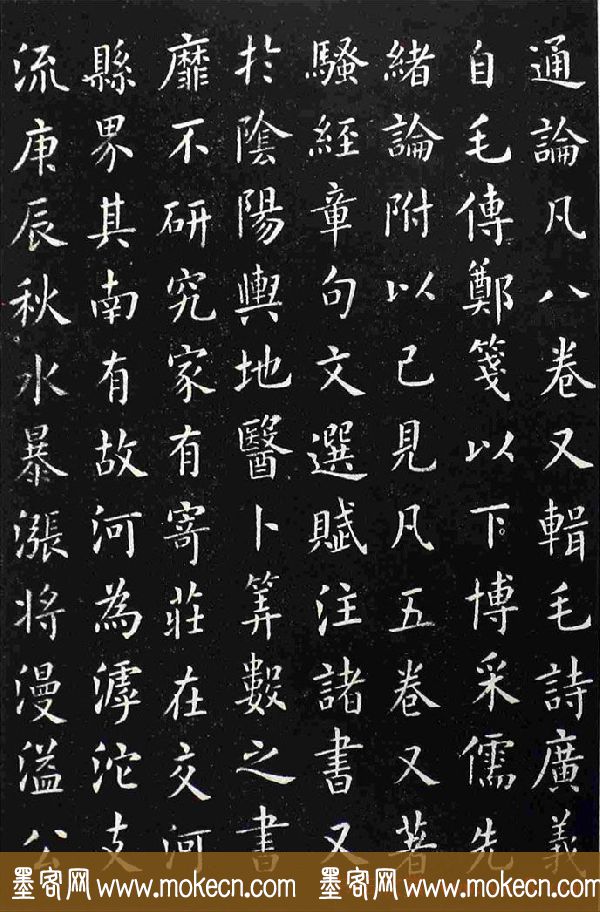 通論凡八卷又輯毛詩廣義
自毛傳鄭箋以下博采儒先
緒論附以己見凡五卷又著
騷經章句文選賦注諸書又
於陰陽輿地醫卜筭數之書
靡不研究家有寄莊在交河
縣界其南有故河為滹沱支
流庚辰秋水暴漲將漫溢公
墨客网 www.mokecn.com 墨客网 www.mokecn.com